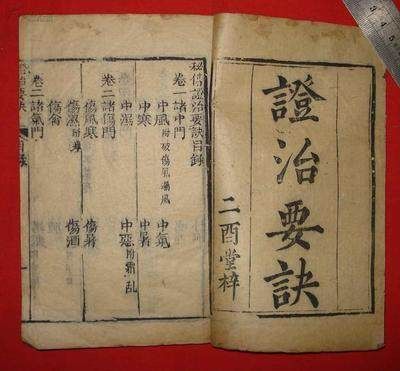 證治要訣
二酉堂梓
秘傳證治要訣目錄
卷一諸中門
中風附破傷風 中氣
中寒 中暑
中濕 中惡附霍亂
卷二諸傷門
傷風寒 傷暑
傷濕附寒 傷酒
傷食
卷三諸氣門
目錄